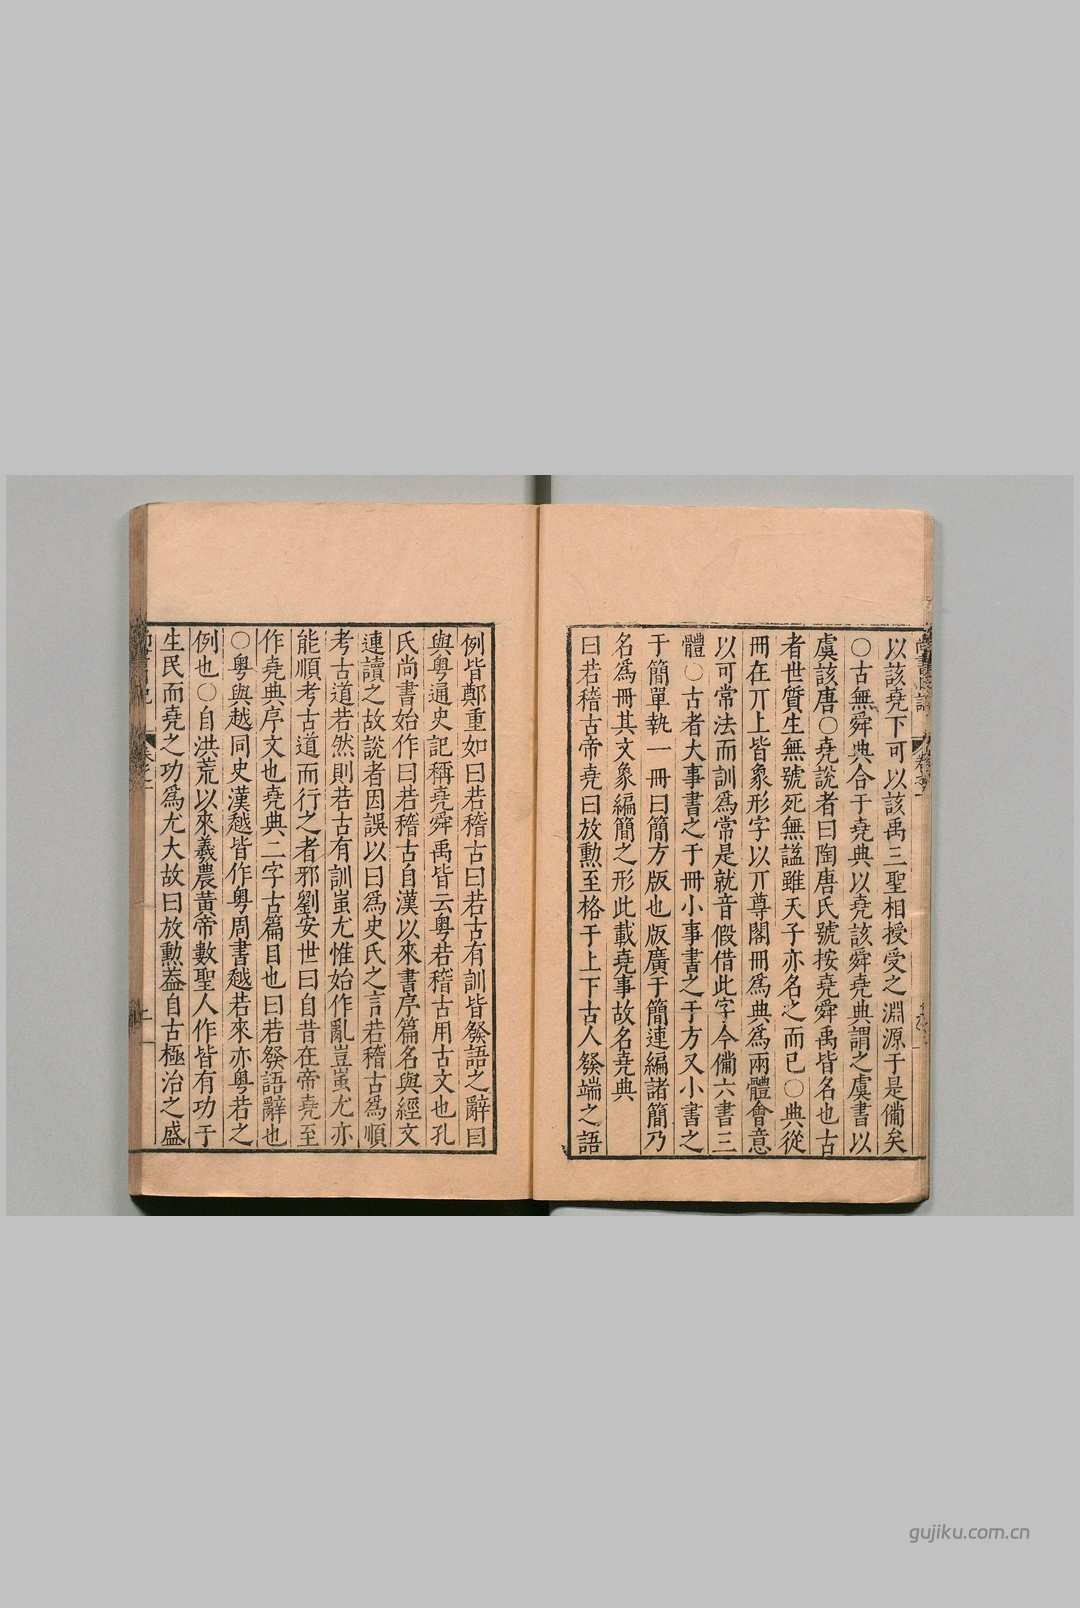 以該堯下可以該禹三聖相授受之淵源于是僃矣
○古無舜典合于堯典以堯該舜堯典謂之虞書以
虞該唐○堯說者曰陶唐氏號按堯舜禹皆名也古
者世質生無號死無謚雖天子亦名之而已○典從
冊在丌上皆象形字以丌尊閣冊為典為兩體會意
以可常法而訓為常是就音假借此字今僃六書三
體○古者大事書之于冊小事書之于方又小書之
于簡單執一冊曰簡方版也版廣于簡連編諸簡乃
名為冊其文象編簡之形此載堯事故名堯典
曰若稽古帝堯曰放勲至格于上下古人發端之語
例皆鄭重如曰若稽古曰若古有訓皆發語之辭曰
與粤通史記稱堯舜禹皆云粤若稽古用古文也孔
氏尚書始作曰若稽古自漢以來書序篇名與經文
連讀之故說者因誤以曰為史氏之言若稽古為順
考古道若然則若古有訓蚩尤惟始作亂豈蚩尤亦
能順考古道而行之者邪劉安世曰自昔在帝堯至
作堯典序文也堯典二字古篇目也曰若發語辭也
○粤與越同史漢越皆作粤周書越若來亦粤若之
例也○自洪荒以來羲農黃帝數聖人作皆有功于
生民而堯之功為尤大故曰放勲葢自古極治之盛
卷之一
gujiku.com.cn